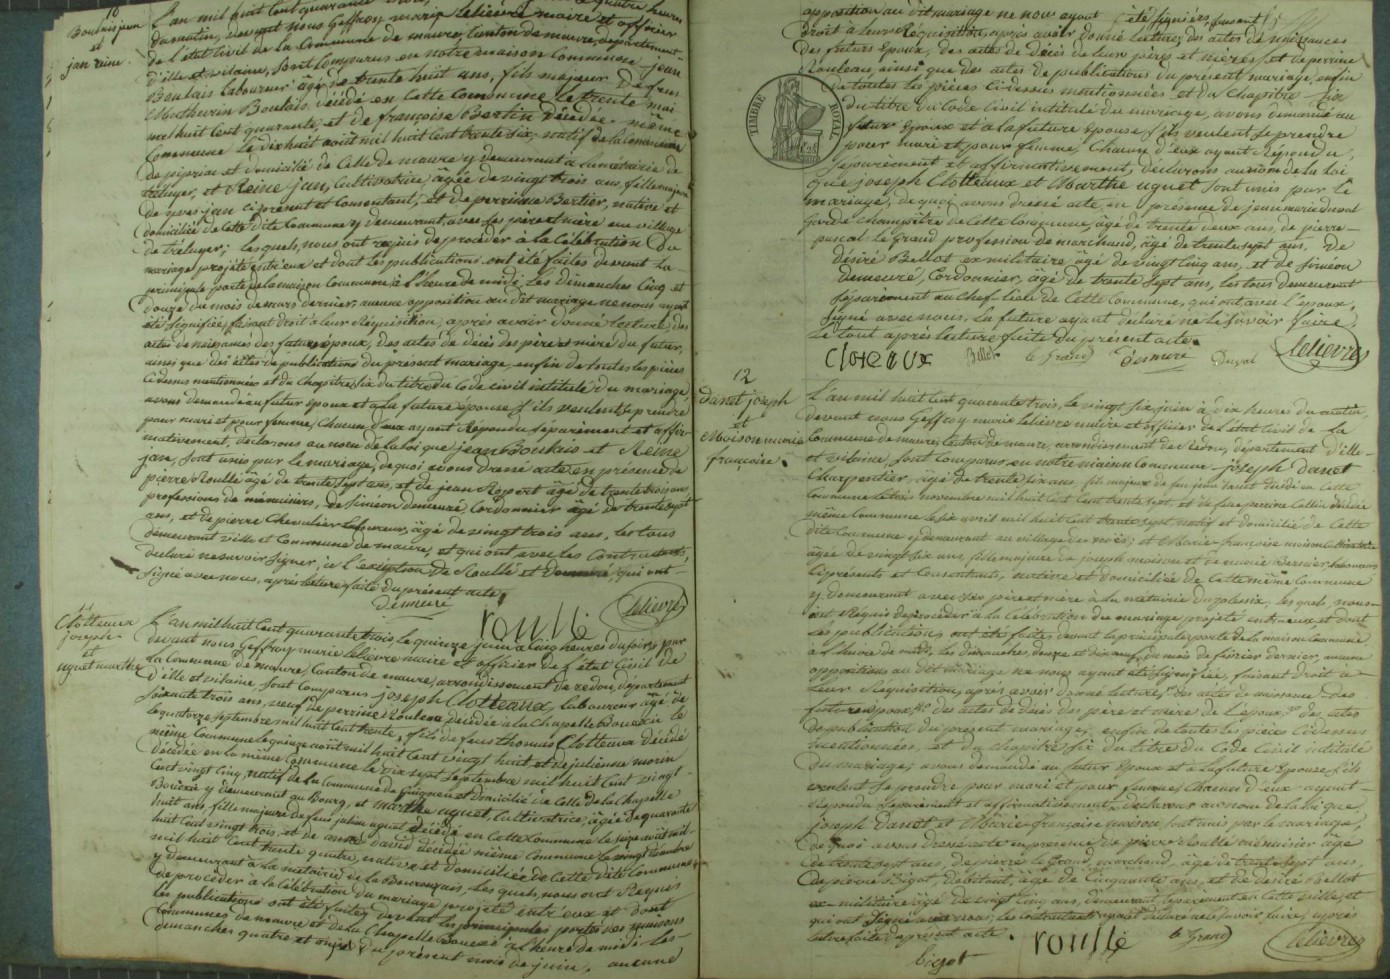 10
Boulais jean
et
jan reine
L'an mil huit cent quarante
du matin, devant nous Geffroy marie Lelièvre maire et officier
de l'état civil de la Commune de maure, Canton de maure, département
d'ille et vilaine, sont Comparus en notre maison Commune jean
Boulais Laboureur âgé de trente huit ans, fils majeur de feu
Mathurin Boulais, décédé en Cette Commune le trente mai
mil huit cent quarante, et de françoise Bertin décédée même
Commune le dix huit aout mil huit cent trente six, natif de la Commune
de pipriac et domicilié de Celle de maure y demeurant à la métairie de
tréluyer, et Reine jan, Cultivatrice, âgée de vingt trois ans fille majeure
de yves jan ci présent et Consentant, et de perrine Bertier, native et
domiciliée de Cette dite Commune y demeurant avec ses père et mère au village
de tréluyer; lesquels nous ont requis de procéder à la Célébration du
mariage projeté entr'eux et dont les publications ont été faites devant la
principale porte de la maison Commune à l'heure de midi, les dimanches Cinq et
douze du mois de mars dernier, aucune opposition au dit mariage ne nous ayant
été signifiée, faisant droit à leur Réquisition, après avoir donné lecture des
actes de naissances des futurs époux, des actes de décès des père et mère du futur,
ainsi que des actes de publications du présent mariage, enfin de toutes les pièces
Ci dessus mentionnées et du Chapitre six du titre du Code Civil intitulé du mariage
avons demandé au futur époux et à la future épouse s'ils veulent se prendre
pour mari et pour femme, Chacun d'eux ayant Répondu séparément et affir-
mativement, déclarons au nom de la loi que jean Boulais et Reine
jan, sont unis par le mariage, de quoi avons dressé acte en présence de
pierre Roullé âgé de trente sept ans, et de jean âgé de trente trois ans
professions de menuisiers, de Siméon demeuré, Cordonnier âgé de trente sept
ans, et de pierre Chevalier Laboureur, âgé de vingt trois ans, les tous
demeurant ville et Commune de maure, et qui ont avec les Contractants,
déclaré ne savoir signer, à l'exception de Roullé et demeuré, qui ont
signé avec nous, après lecture faite du présent acte
Demeuré roullé Lelievre
11
Clotteaux
joseph
et
uguet marthe
L'an mil huit cent quarante trois, le quinze juin à Cinq heures du soir, par
devant nous Geffroy marie Lelièvre maire et officier de l'état Civil de
la Commune de maure, Canton de maure, arrondissement de redon, département
d'ille et vilaine, sont Comparus joseph Clotteaux, Laboureur âgé de
soixante trois ans, veuf de perrine Rouleau, décédée à la Chapelle Bouexic le
quatorze septembre mil huit cent trente, fils de feus thomas Clotteaux décédé
même Commune le quinze août mil huit cent vingt huit et de julienne morin
décédée en la même Commune le dix sept septembre mil huit cent vingt
Cent vingt Cinq, natif de la Commune de Guignen et domicilié de Celle de la Chapelle
Bouexic y demeurant au Bourg, et marthe uguet, Cultivatrice, âgée de quarante
huit ans, fille majeure de feus julien uguet décédé en Cette Commune le seize avril mil
huit Cent vingt trois, et de anne david décédée même Commune le vingt
mil huit Cent trente quatre, native et domiciliée de Cette dite Commune
y demeurant à la métairie de la , Les quels nous ont Requis
de procéder à la Célébration du mariage projeté entr'eux et dont
les publications ont été faites devant les principales portes des maisons
Communes de maure et de la Chapelle Bouexic à l'heure de midi les
dimanches quatre et onze du présent mois de juin, aucune
opposition au dit mariage ne nous ayant été signifiée, faisant
droit à leur Réquisition, après avoir donné lecture, des actes de naissances
des futurs époux, des actes de décès de leurs pères et mères, et de perrine
Rouleau, ainsi que des actes de publications du présent mariage, enfin
de toutes les pièces Ci dessus mentionnées et du Chapitre six
du titre du Code Civil intitulé du mariage, avons demandé au
futur époux et à la future épouse s'ils veulent se prendre
pour mari et pour femme, Chacun d'eux ayant Répondu,
séparément et affirmativement, déclarons au nom de la Loi
que joseph Clotteaux et Marthe uguet sont unis par le
mariage, de quoi avons dressé acte en présence de jean marie Duval
Garde Champêtre de Cette Commune, âgé de trente deux ans, de pierre
pascal le Grand profession de marchand, âgé de trente sept ans, De
désiré Bellot ex militaire âgé de vingt Cinq ans, et de Siméon
Demeuré, Cordonnier, âgé de trente Sept ans, les tous demeurant
séparément au Chef lieu de Cette Commune, qui ont avec l'époux,
signé avec nous, la future ayant déclaré ne le savoir faire,
le tout après lecture faite du présent acte
TIMBRE ROYAL
cloteaux Bellot le Grand Demeuré Duval Lelievre
12
Danet joseph
et
Moison marie
françoise
L'an mil huit cent quarante trois, le vingt six juin à dix heures du matin,
devant nous Geffroy marie Lelièvre maire et officier de l'état Civil de la
Commune de maure, Canton de maure, arrondissement de Redon, département d'ille
et vilaine, sont Comparus en notre maison Commune joseph Danet
Charpentier, âgé de trente six ans, fils majeur de feu jean Danet décédé en Cette
Commune le trois novembre mil huit cent trente sept, et de feue perrine Collin décédée
même Commune le six avril mil huit Cent trente sept natif et domicilié de Cette
dite Commune y demeurant au village des ; et Marie françoise moison
âgée de vingt six ans, fille majeure de joseph moison et de marie Bernier Laboureurs
Ci présents et Consentants, native et domiciliée de Cette même Commune
y demeurant avec ses père et mère à la métairie du plessix, les quels nous
ont Requis de procéder à la Célébration du mariage projeté entr'eux et dont
les publications ont été faites devant la principale porte de la maison Commune
à l'heure de midi, les dimanches, douze et dix neuf du mois de février dernier, aucune
oppositions au dit mariage ne nous ayant été signifiée, faisant droit à
leur Réquisition, après avoir donné lecture, des actes de naissance des
futurs époux, des actes de décès des père et mère de l'époux, des actes
de publication du présent mariage, enfin de toutes les pièces Ci dessus
mentionnées, et du chapitre six du titre du Code Civil intitulé
du mariage, avons demandé au futur époux et à la future épouse s'ils
veulent se prendre pour mari et pour femme, Chacun d'eux ayant
Répondu séparément et affirmativement, déclarons au nom de la loi que
joseph Danet et Marie françoise moison sont unis par le mariage,
de quoi avons dressé acte en présence de pierre Roullé menuisier âgé
de trente sept ans, de pierre le Grand, marchand, âgé de trente sept ans,
de pierre Bigot, débitant, âgé de Cinquante ans, et de désiré Bellot
ex militaire âgé de vingt Cinq ans, demeurant séparément en Cette ville, et
qui ont signé avec nous; les contractants ayant déclaré ne le savoir faire, après
lecture faite du présent acte.
bigot roullé le Grand Lelievre